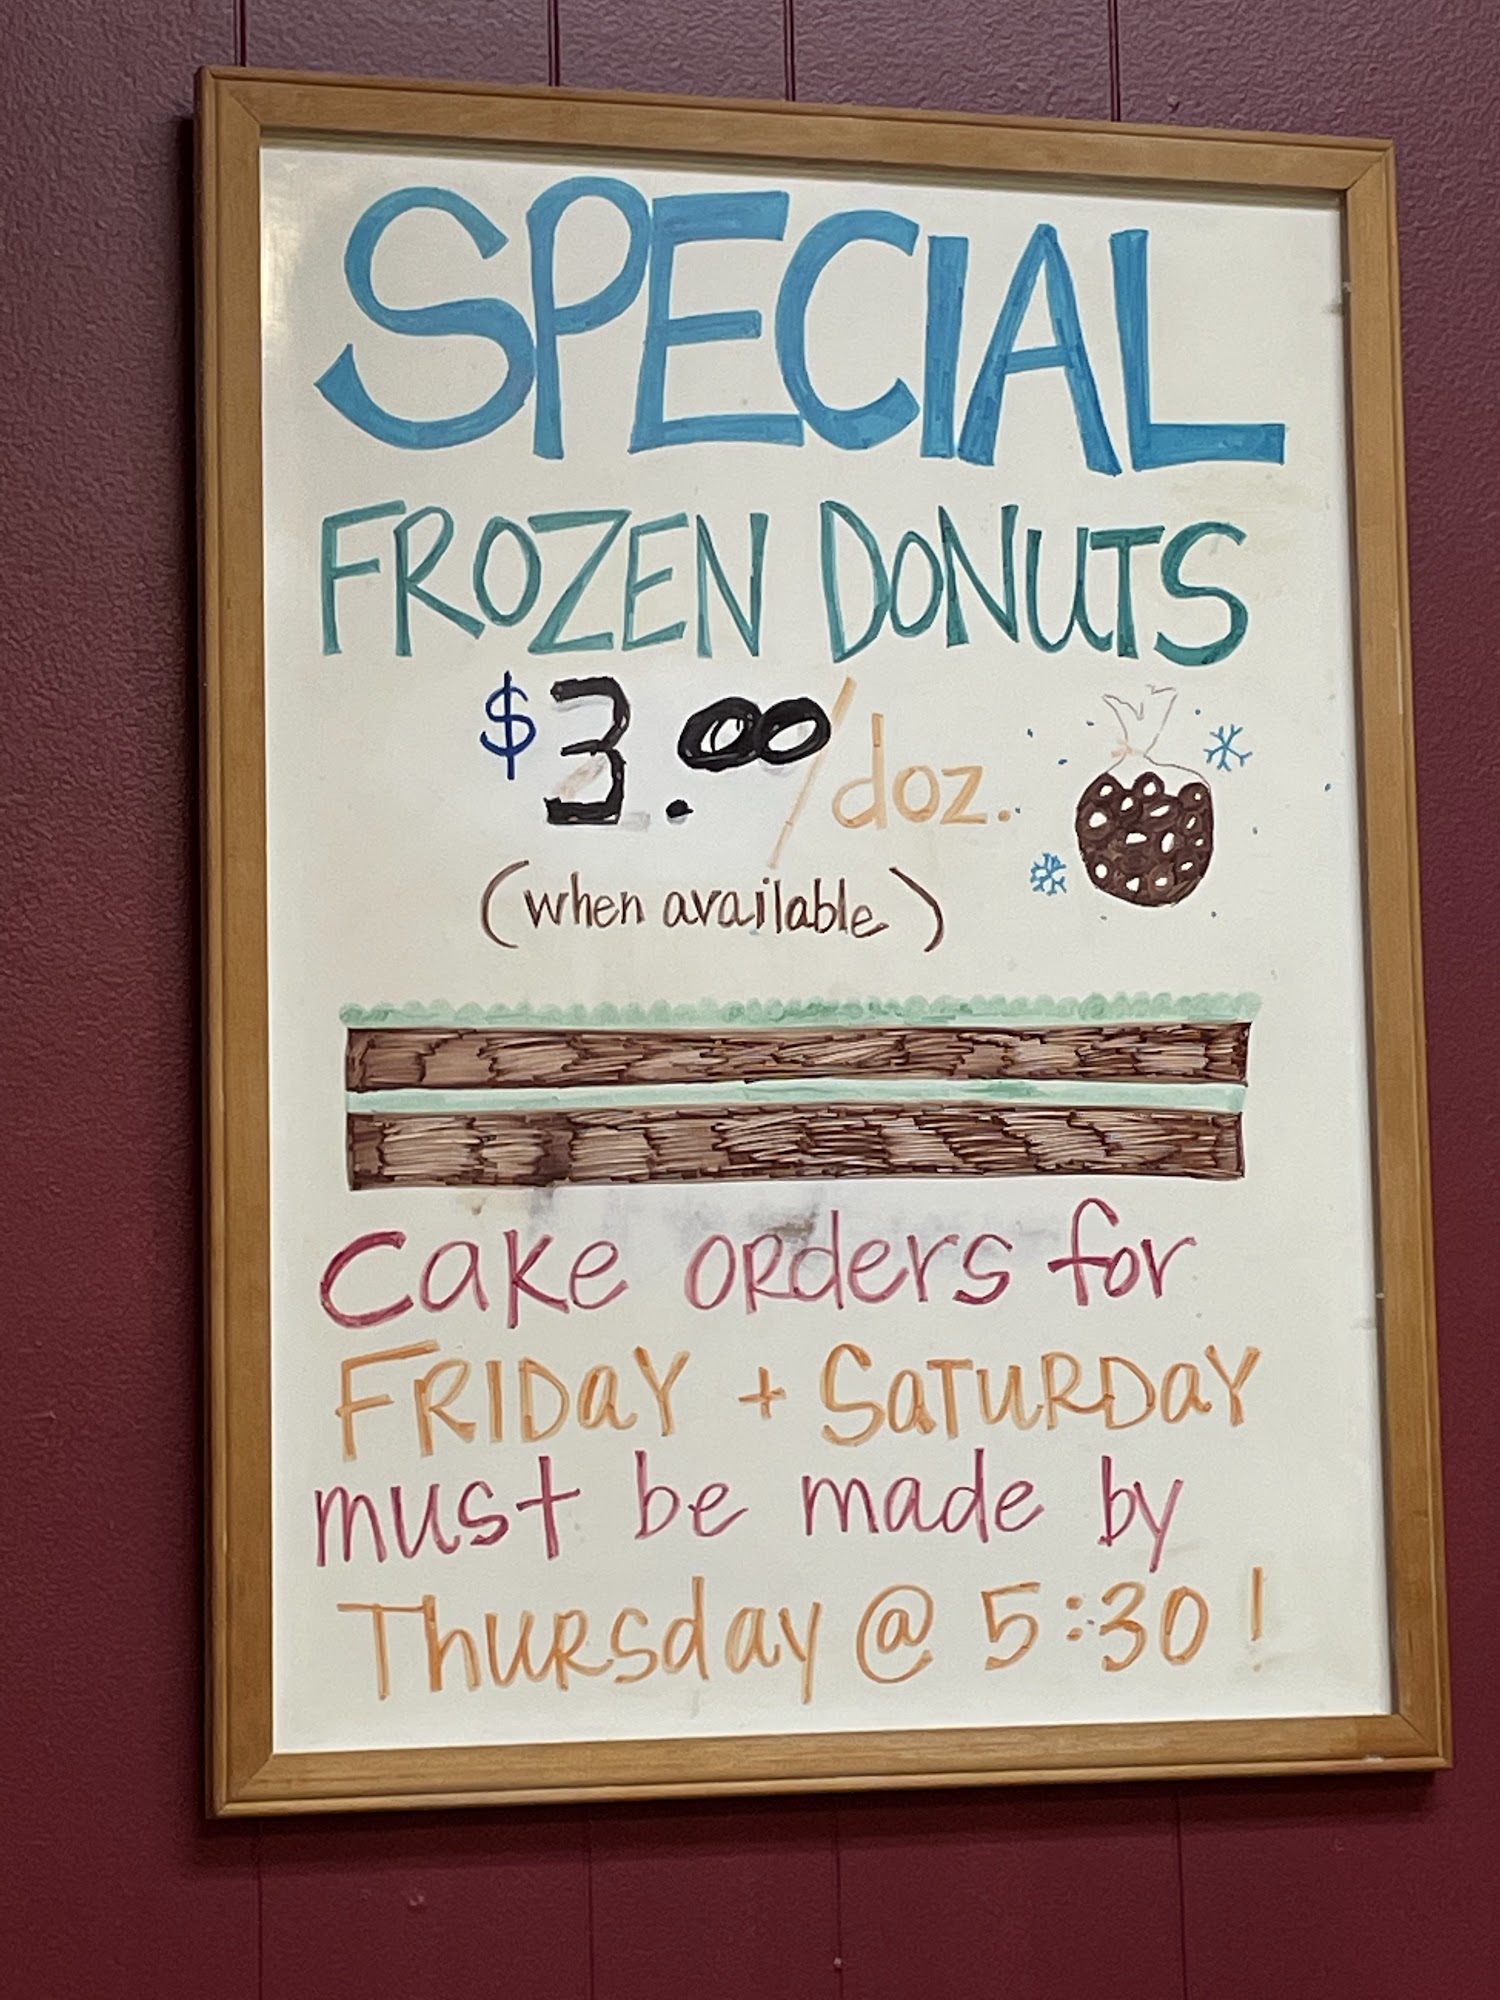 SPECIAL
FROZEN DONUTS
$3.00/doz.
(when available)
Cake orders for
FRIDAY + SATURDAY
must be made by
Thursday @ 5:30!